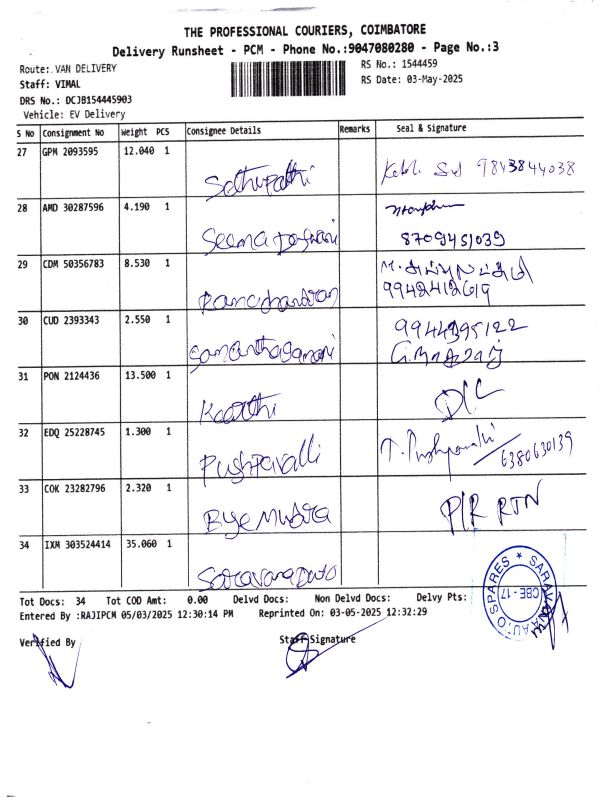 THE PROFESSIONAL COURIERS, COIMBATORE
Delivery Runsheet - PCM - Phone No.:9047080280 - Page No.:3
Route: VAN DELIVERY
RS No.: 1544459
Staff: VIMAL
RS Date: 03-May-2025
DRS No.: DCJB154445903
Vehicle: EV Delivery
S No Consignment No Weight PCS Consignee Details Remarks Seal & Signature
27 GPM 2093595 12.040 1
Sathupathi 9843844038
28 AMD 30287596 4.190 1
Seema 8709451039
29 CDM 50356783 8.530 1
Ramachandran
30 CUD 2393343 2.550 1
9944395122
31 PON 2124436 13.500 1
Kaarthi D/C
32 EDQ 25228745 1.300 1
Pushpavalli 6380630139
33 COK 23282796 2.320 1
Bye Mudra P/R RTN
34 IXM 303524414 35.060 1
Saravana Auto
SARAVANA AUTO SPARES
CBE - 17
Tot Docs: 34 Tot COD Amt: 0.00 Delvd Docs: Non Delvd Docs: Delvy Pts:
Entered By :RAJIPCM 05/03/2025 12:30:14 PM Reprinted On: 03-05-2025 12:32:29
Verified By Staff Signature